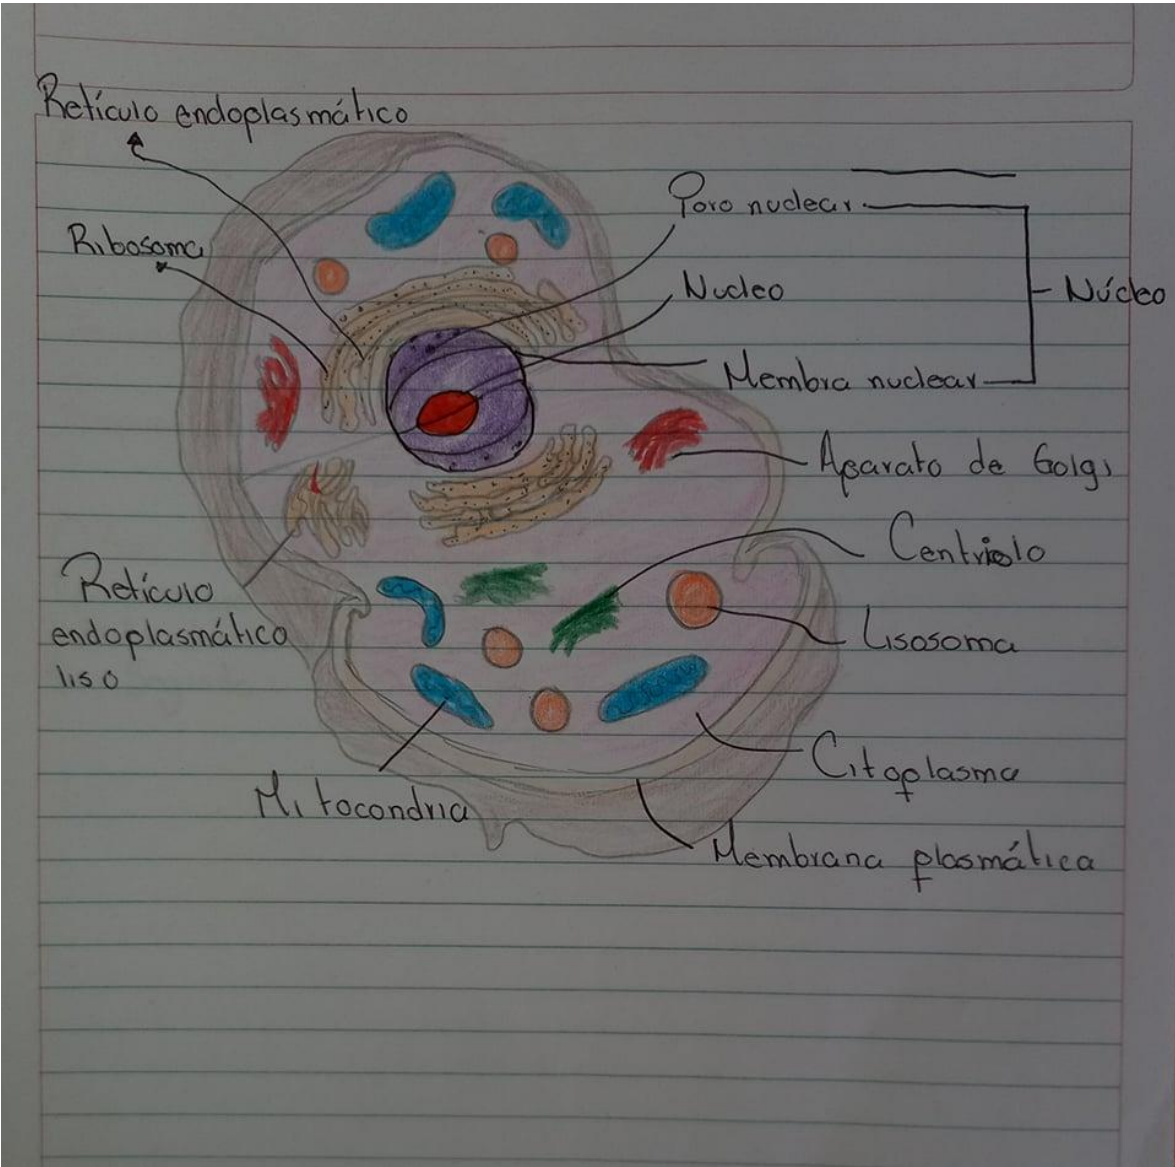 Retículo endoplasmático
Ribosoma
Poro nuclear
Nucleo
Núcleo
Membra nuclear
Aparato de Golgi
Centriolo
Retículo
endoplasmático
liso
Lisosoma
Citoplasma
Mitocondria
Membrana plasmática